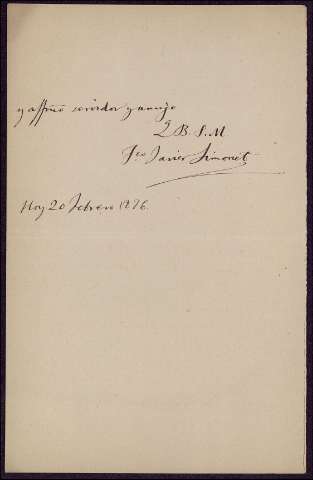 y affmo servidor y amigo
Q B. S. M
Fco Javier Simonet
Hoy 20 Febrero 1876.